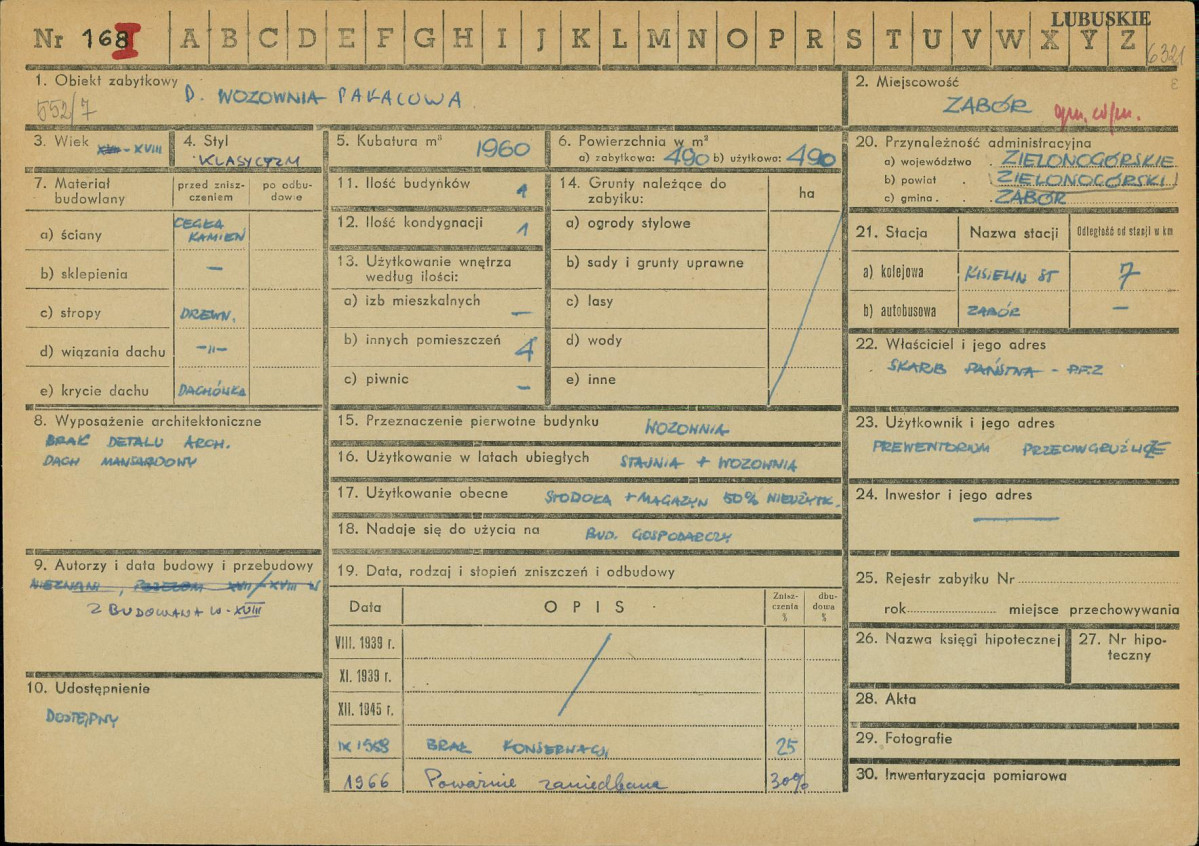 LUBUSKIE
Nr 168 I A B C D E F G H I J K L M N O P R S T U V W X Y Z
6321
1. Obiekt zabytkowy
D. WOZOWNIA PAŁACOWA
552/7
2. Miejscowość
ZABÓR gm. w/m.
3. Wiek XVIII
4. Styl
KLASYCYZM
5. Kubatura m³ 1960
6. Powierzchnia w m²
a) zabytkowa: 490 b) użytkowa: 490
7. Materiał budowlany
przed zniszczeniem
po odbudowie
a) ściany CEGŁA KAMIEŃ
b) sklepienia —
c) stropy DREWN.
d) wiązania dachu —"—
e) krycie dachu DACHÓWKA
8. Wyposażenie architektoniczne
BRAK DETALU ARCH.
DACH MANSARDOWY
9. Autorzy i data budowy i przebudowy
NIEZNANI, PRZEŁOM XVII/XVIII W
ZBUDOWANA W. XVIII
10. Udostępnienie
DOSTĘPNY
11. Ilość budynków 1
12. Ilość kondygnacji 1
13. Użytkowanie wnętrza
według ilości:
a) izb mieszkalnych —
b) innych pomieszczeń 4
c) piwnic —
14. Grunty należące do
zabytku:
ha
a) ogrody stylowe
b) sady i grunty uprawne
c) lasy
d) wody
e) inne
15. Przeznaczenie pierwotne budynku WOZOWNIA
16. Użytkowanie w latach ubiegłych STAJNIA + WOZOWNIA
17. Użytkowanie obecne STODOŁA + MAGAZYN 50% NIEUŻYTK.
18. Nadaje się do użycia na BUD. GOSPODARCZY
19. Data, rodzaj i stopień zniszczeń i odbudowy
Data OPIS Zniszczenia % dbudowa %
VIII. 1939 r.
XI. 1939 r.
XII. 1945 r.
IX 1958 BRAK KONSERWACJI 25
1966 Poważnie zaniedbana 30%
20. Przynależność administracyjna
a) województwo ZIELONOGÓRSKIE
b) powiat ZIELONOGÓRSKI
c) gmina ZABÓR
21. Stacja Nazwa stacji Odległość od stacji w km
a) kolejowa KISIELIN ST 7
b) autobusowa ZABÓR —
22. Właściciel i jego adres
SKARB PAŃSTWA - PFZ
23. Użytkownik i jego adres
PREWENTORIUM PRZECIWGRUŹLICZE
24. Inwestor i jego adres
—
25. Rejestr zabytku Nr
rok miejsce przechowywania
26. Nazwa księgi hipotecznej
27. Nr hipoteczny
28. Akta
29. Fotografie
30. Inwentaryzacja pomiarowa